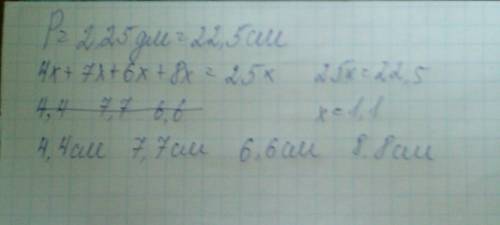 P = 2,25дм = 22,5см
4x + 7x + 6x + 8x = 25x 25x = 22,5
4,4 7,7 6,6 x = 1,1
4,4см 7,7см 6,6см 8.8см